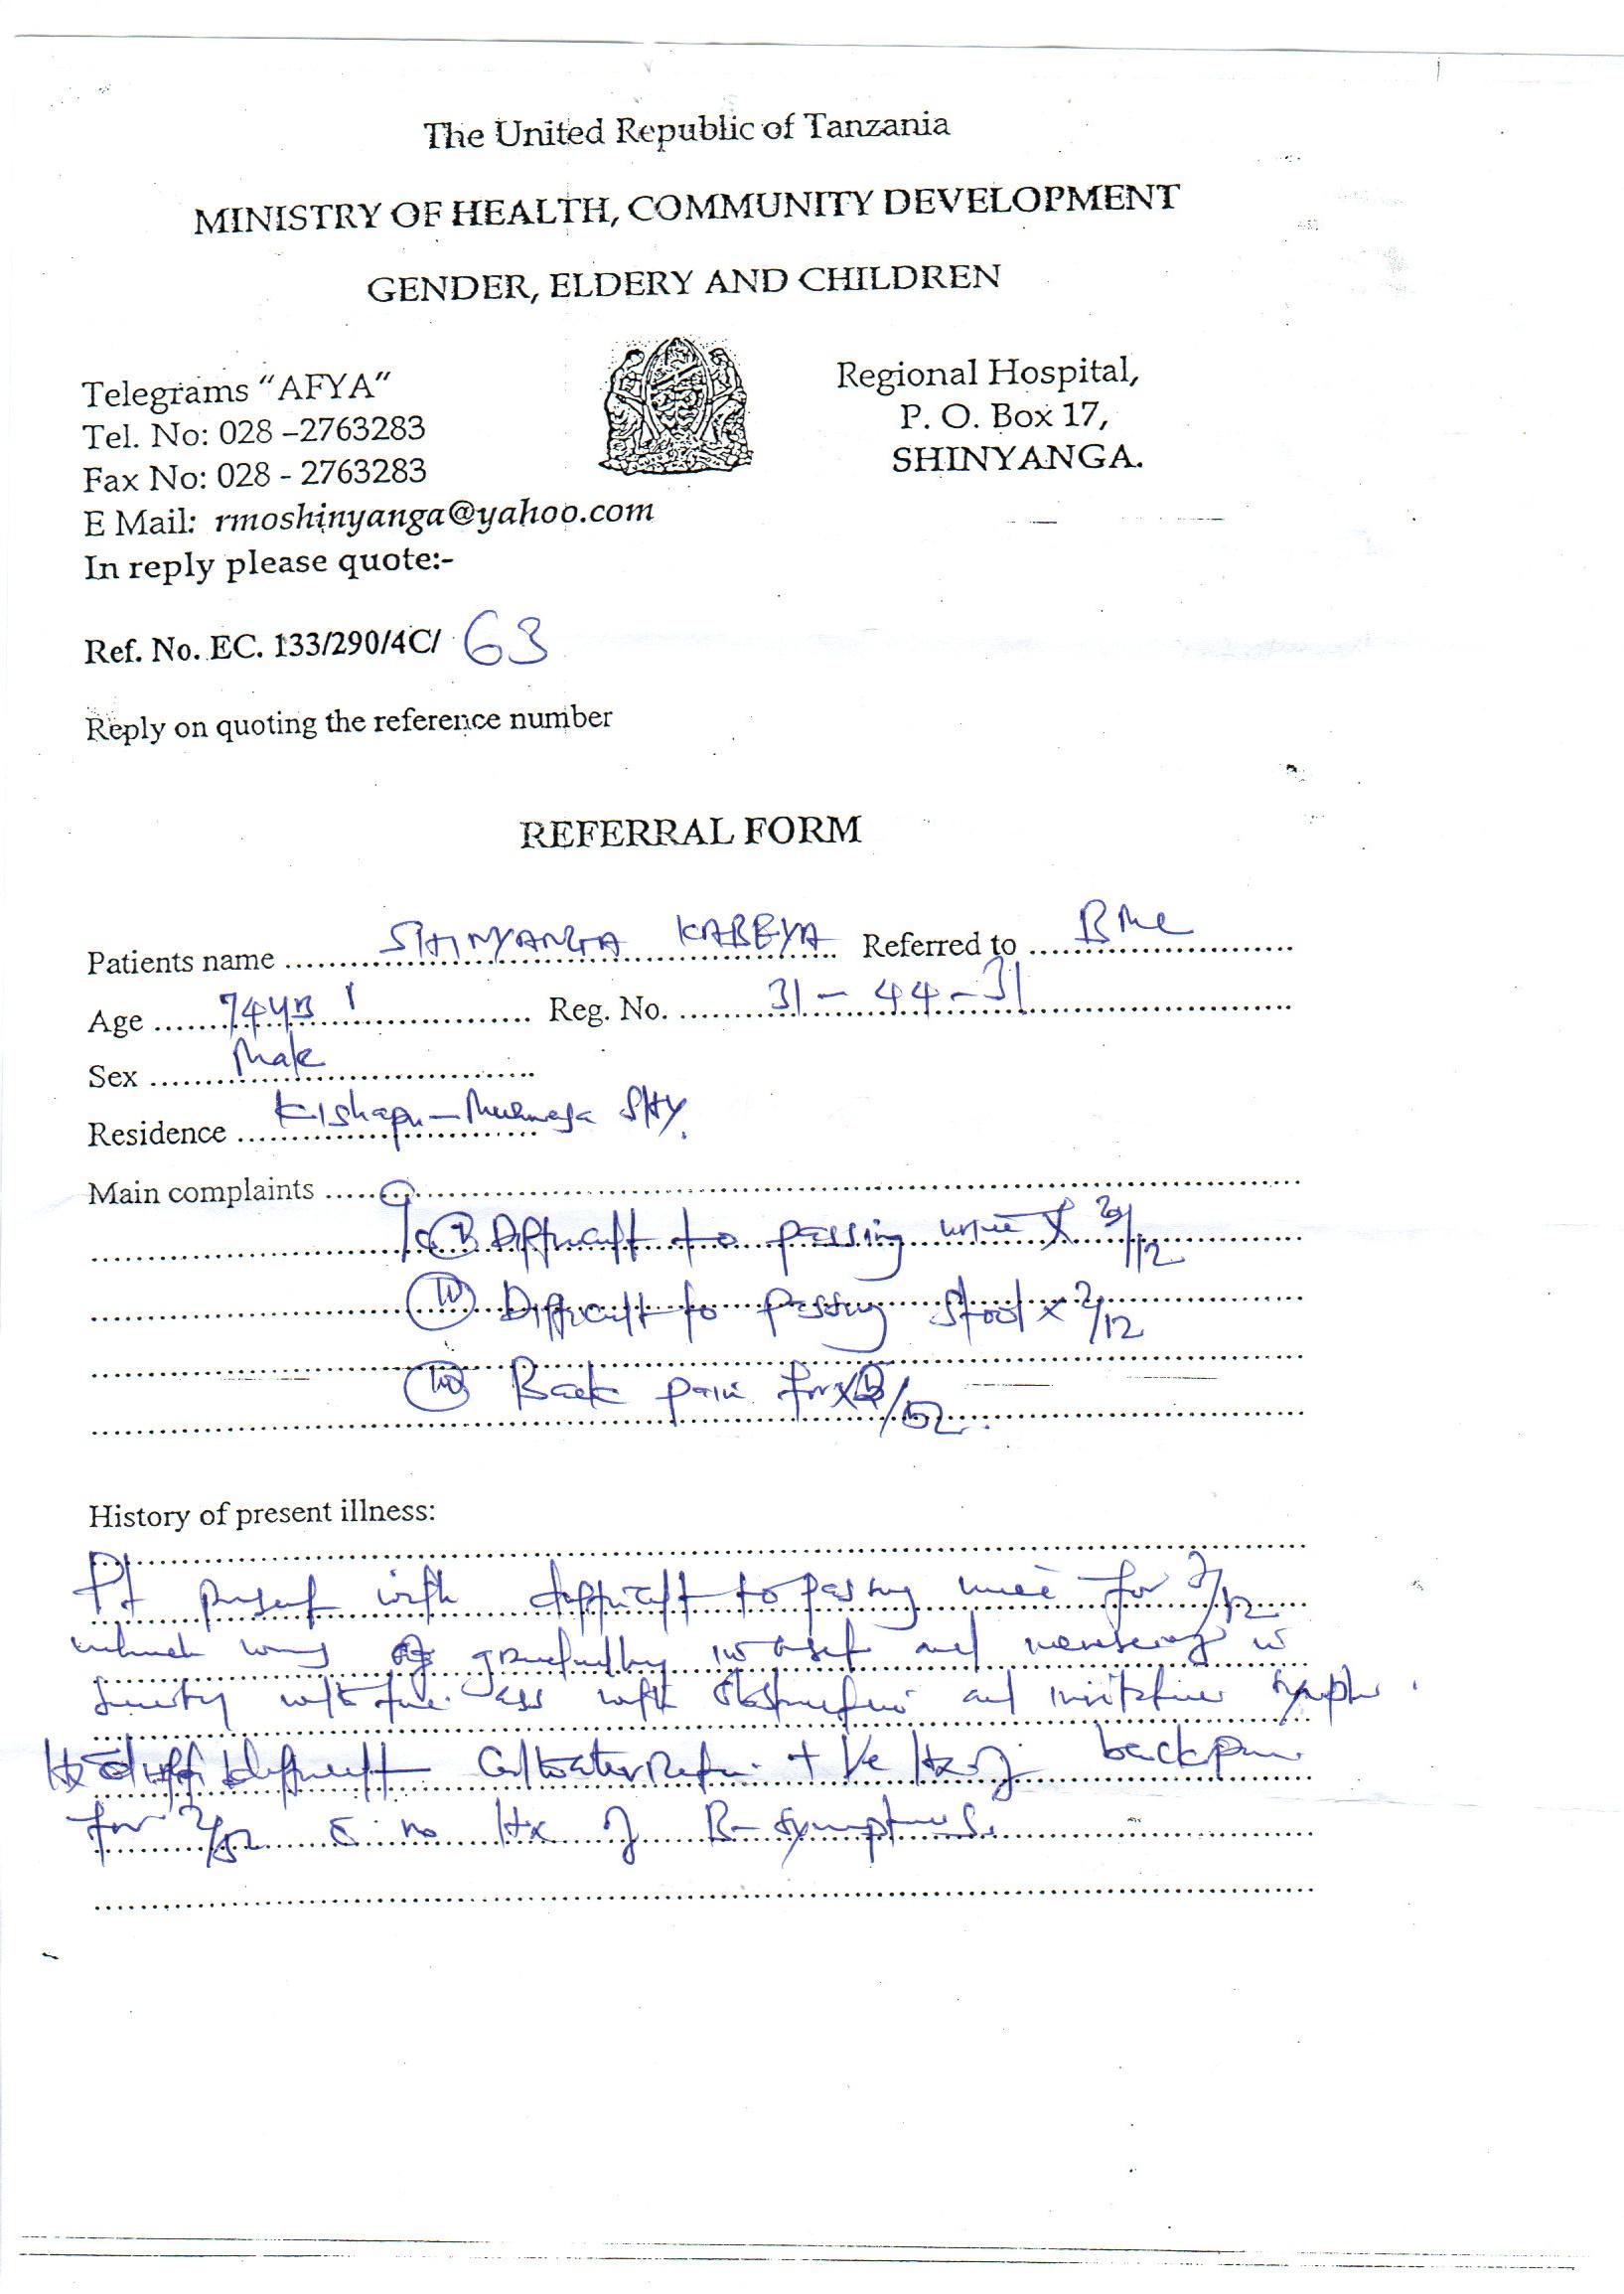 The United Republic of Tanzania
MINISTRY OF HEALTH, COMMUNITY DEVELOPMENT
GENDER, ELDERY AND CHILDREN
Telegrams "AFYA"
Tel. No: 028 –2763283
Fax No: 028 - 2763283
E Mail: rmoshinyanga@yahoo.com
In reply please quote:-
Regional Hospital,
P. O. Box 17,
SHINYANGA.
Ref. No. EC. 133/290/4C/ 63
Reply on quoting the reference number
REFERRAL FORM
Patients name SHINYANGA KABEYA Referred to BMC
Age 74yrs Reg. No. 31 - 44 - 31
Sex Male
Residence Kishapu - SHY.
Main complaints
Difficult to passing urine x /12
Difficult to passing stool x 2/12
Back pain for x /52
History of present illness:
Pt present with difficult to passing urine for 3/12
which was gradually in onset and increasing in
severity with time. ass with obstructive and irritative
Hx of difficult + Ve Hx of back pain
for 2/52 c no Hx of B-symptoms.